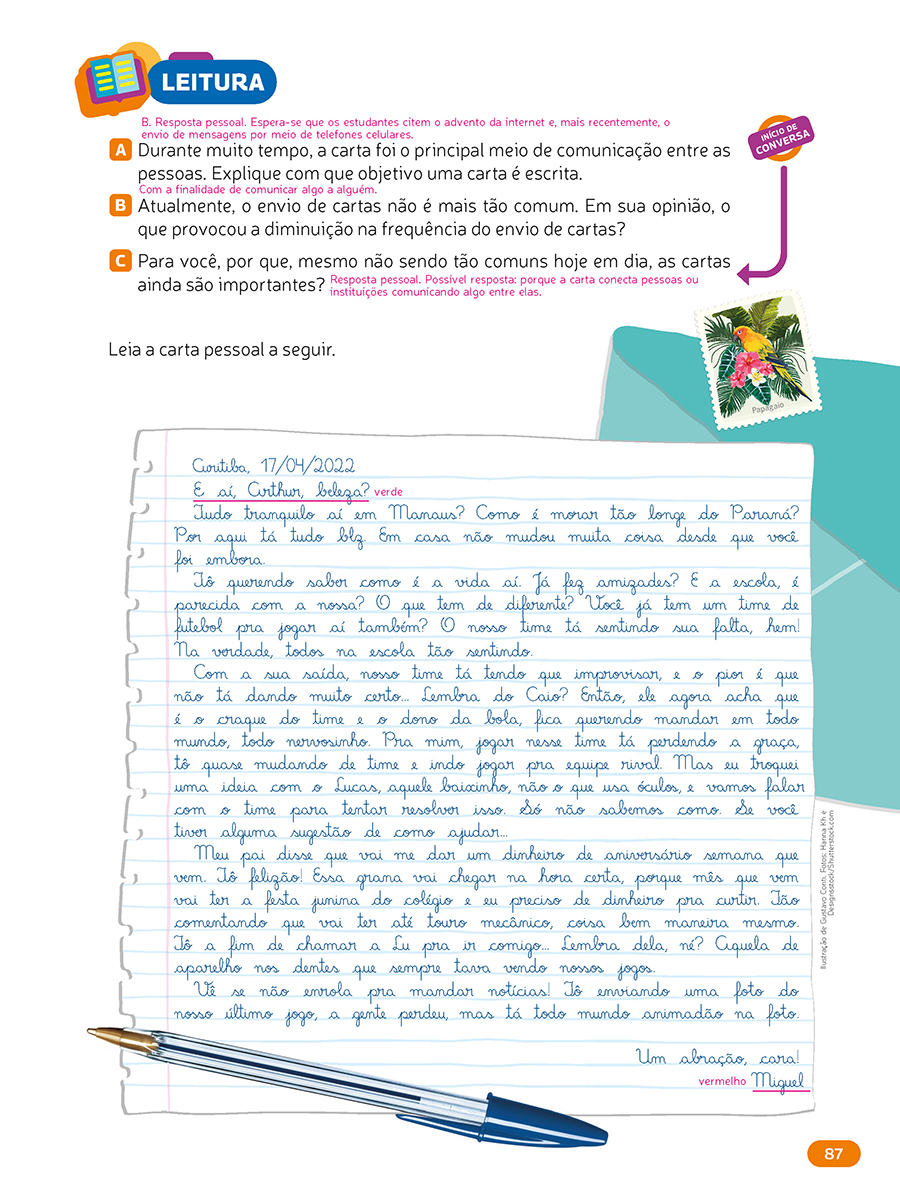 LEITURA
B. Resposta pessoal. Espera-se que os estudantes citem o advento da internet e, mais recentemente, o
envio de mensagens por meio de telefones celulares.
INÍCIO DE
CONVERSA
A Durante muito tempo, a carta foi o principal meio de comunicação entre as
pessoas. Explique com que objetivo uma carta é escrita.
Com a finalidade de comunicar algo a alguém.
B Atualmente, o envio de cartas não é mais tão comum. Em sua opinião, o
que provocou a diminuição na frequência do envio de cartas?
C Para você, por que, mesmo não sendo tão comuns hoje em dia, as cartas
ainda são importantes? Resposta pessoal. Possível resposta: porque a carta conecta pessoas ou
instituições comunicando algo entre elas.
Leia a carta pessoal a seguir.
Papagaio
Curitiba, 17/04/2022
E aí, Arthur, beleza? verde
Tudo tranquilo aí em Manaus? Como é morar tão longe do Paraná?
Por aqui tá tudo blz. Em casa não mudou muita coisa desde que você
foi embora.
Tô querendo saber como é a vida aí. Já fez amizades? E a escola, é
parecida com a nossa? O que tem de diferente? Você já tem um time de
futebol pra jogar aí também? O nosso time tá sentindo sua falta, hem!
Na verdade, todos na escola tão sentindo.
Com a sua saída, nosso time tá tendo que improvisar, e o pior é que
não tá dando muito certo... Lembra do Caio? Então, ele agora acha que
é o craque do time e o dono da bola, fica querendo mandar em todo
mundo, todo nervosinho. Pra mim, jogar nesse time tá perdendo a graça,
tô quase mudando de time e indo jogar pra equipe rival. Mas eu troquei
uma ideia com o Lucas, aquele baixinho, não o que usa óculos, e vamos falar
com o time para tentar resolver isso. Só não sabemos como. Se você
tiver alguma sugestão de como ajudar...
Meu pai disse que vai me dar um dinheiro de aniversário semana que
vem. Tô felizão! Essa grana vai chegar na hora certa, porque mês que vem
vai ter a festa junina do colégio e eu preciso de dinheiro pra curtir. Tão
comentando que vai ter até touro mecânico, coisa bem maneira mesmo.
Tô a fim de chamar a Lu pra ir comigo... Lembra dela, né? Aquela de
aparelho nos dentes que sempre tava vendo nossos jogos.
Vê se não enrola pra mandar notícias! Tô enviando uma foto do
nosso último jogo, a gente perdeu, mas tá todo mundo animadão na foto.
Um abração, cara!
vermelho Miguel
Ilustração de Gustavo Conti. Fotos: Hanna Kh e
Designsstock/Shutterstock.com
87